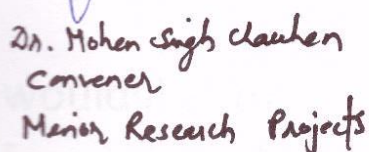 Dr. Mohen Singh Chauhen
Convener
Menior Research Projects